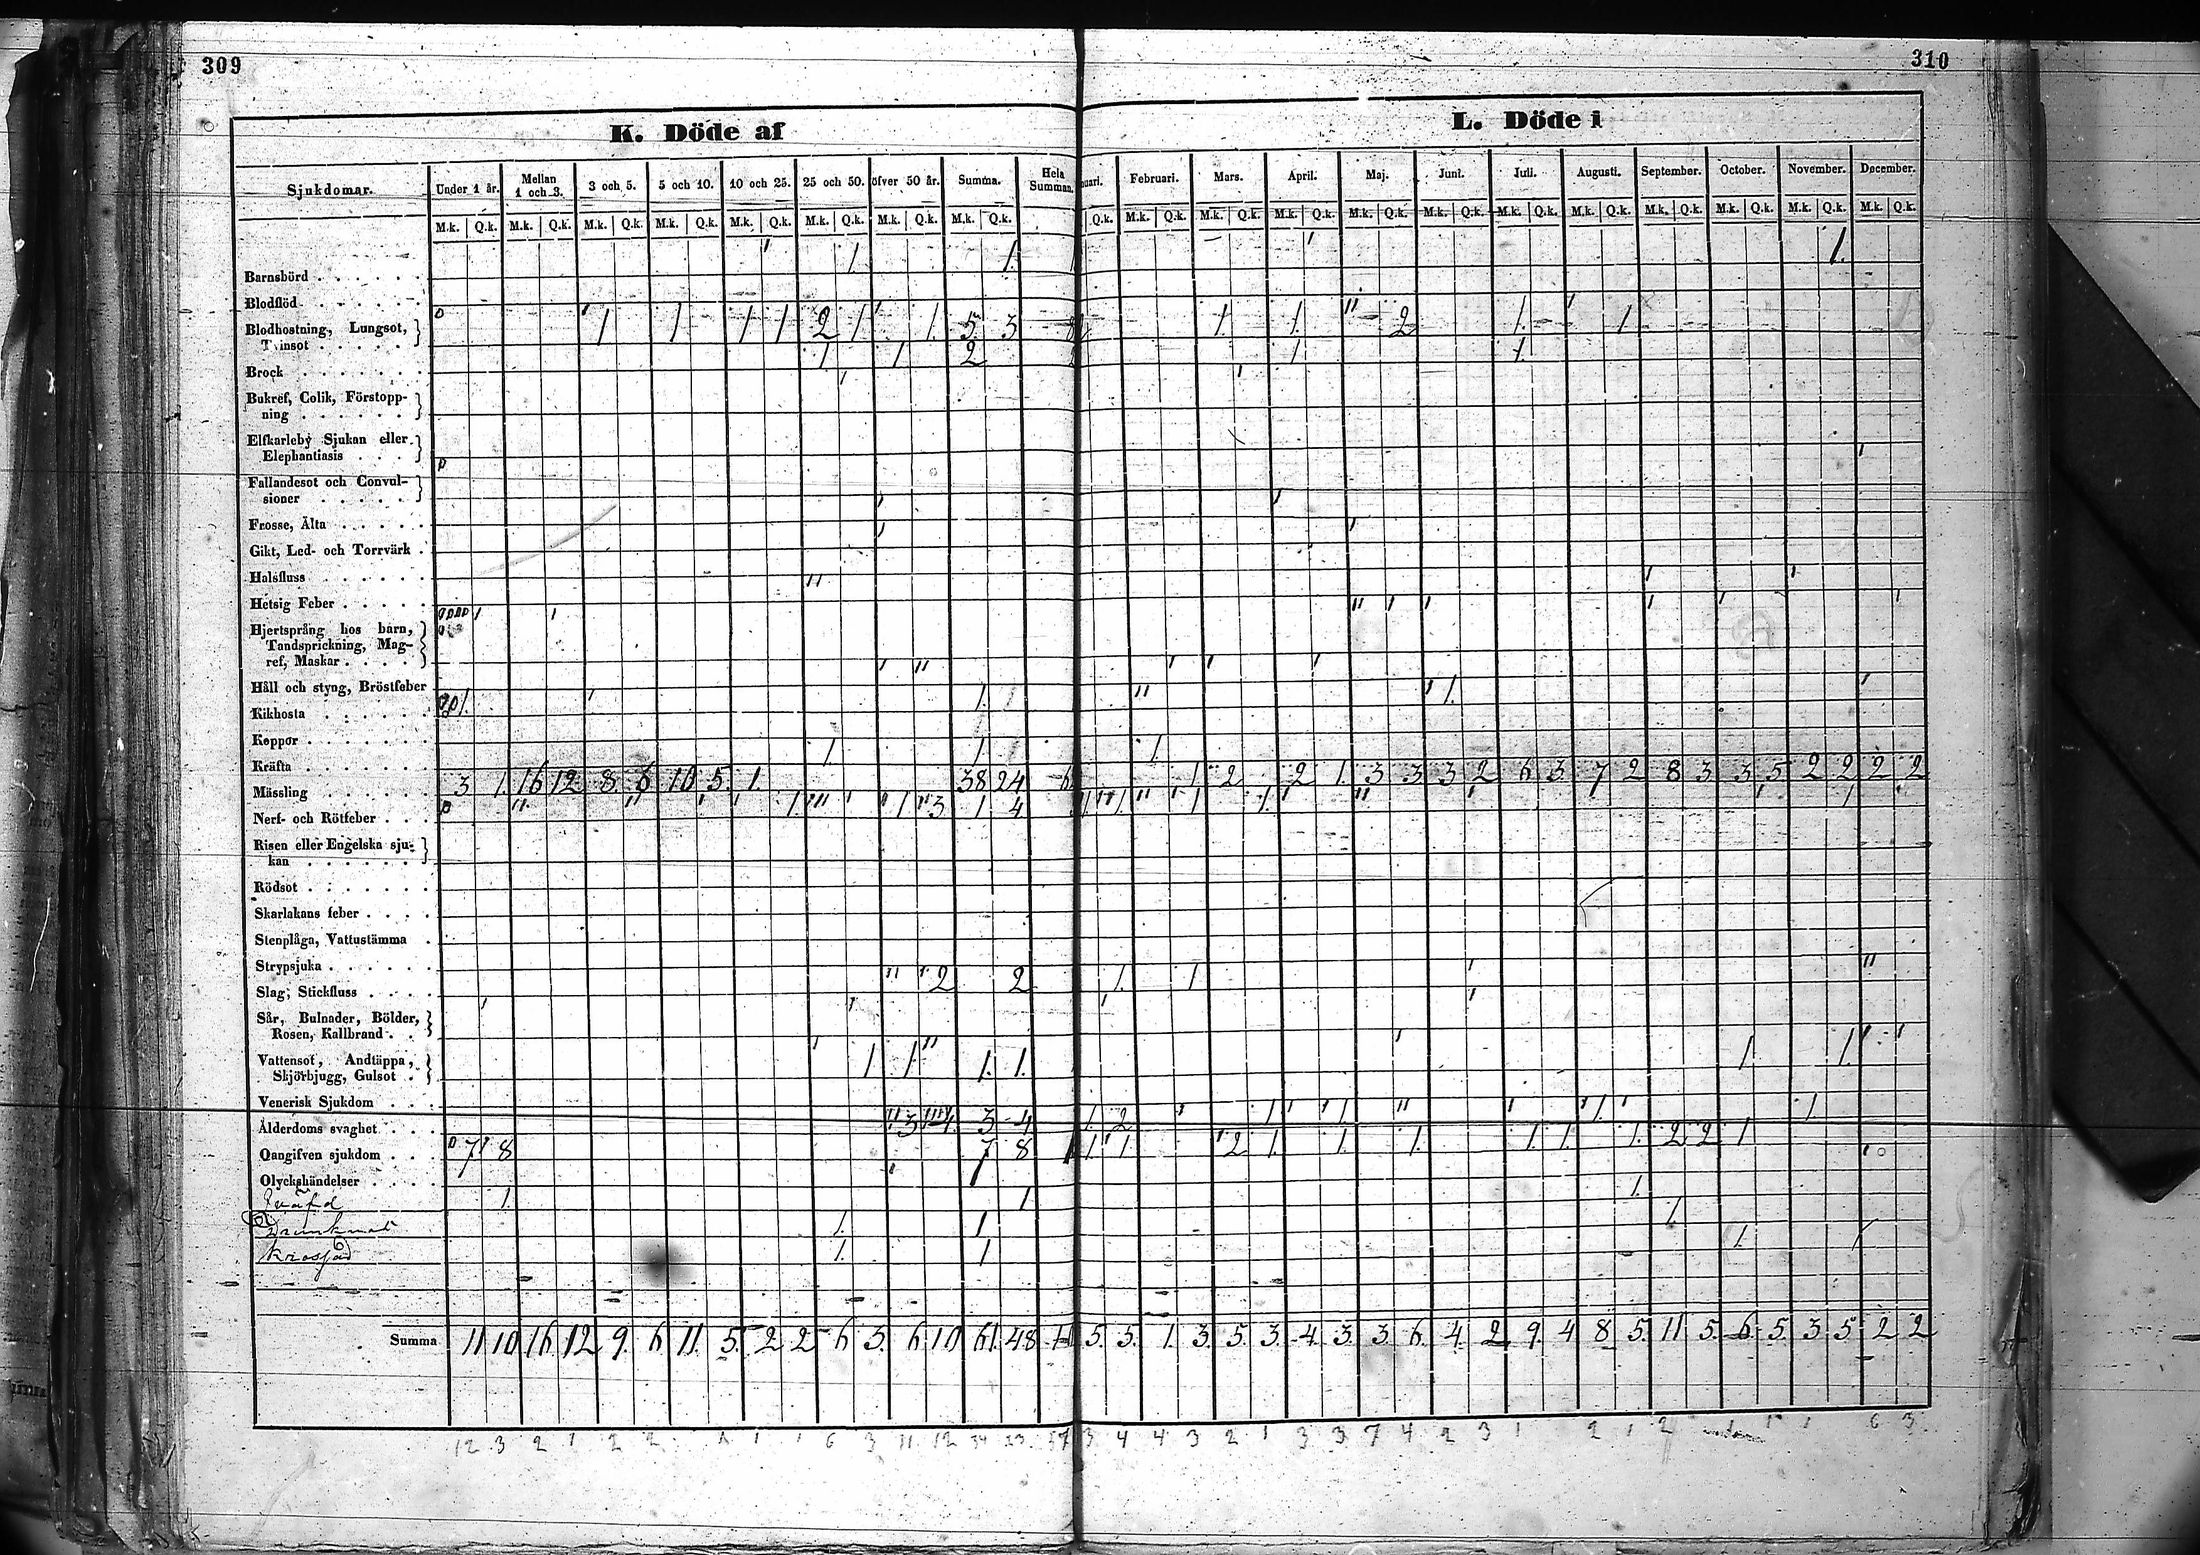 309
310
K. Döde af
L. Döde i
Sjukdomar. Under 1 år. Mellan 1 och 3. 3 och 5. 5 och 10. 10 och 25. 25 och 50. öfver 50 år. Summa. Hela Summan.
uari. Februari. Mars. April. Maj. Juni. Juli. Augusti. September. October. November. December.
M.k. Q.k. M.k. Q.k. M.k. Q.k. M.k. Q.k. M.k. Q.k. M.k. Q.k. M.k. Q.k. M.k. Q.k.
Q.k. M.k. Q.k. M.k. Q.k. M.k. Q.k. M.k. Q.k. M.k. Q.k. M.k. Q.k. M.k. Q.k. M.k. Q.k. M.k. Q.k. M.k. Q.k. M.k. Q.k.
Barnsbörd 1 1. 1.
Blodflöd
Blodhostning, Lungsot,
Tvinsot 1 1 1 1 2 1 1. 5 3 1 1. 2 1. 1
Brock 1 1 2 1 1.
Bukref, Colik, Förstopp-
ning
Elfkarleby Sjukan eller
Elephantiasis
Fallandesot och Convul-
sioner
Frosse, Älta
Gikt, Led- och Torrvärk
Halsfluss
Hetsig Feber
Hjertsprång hos barn,
Tandsprickning, Mag-
ref, Maskar
Håll och styng, Bröstfeber
Kikhosta 1. 1. 1.
Koppor
Kräfta 1 1 1
Mässling 3 1. 16 12 8 6 10 5 1. 38 24 1 2 2 1. 3 3 3 2 6 3 7 2 8 3 3 5 2 2 2 2
Nerf- och Rötfeber 1. 1 3 1 4 1 1. 1 1. 1
Risen eller Engelska sju-
kan
Rödsot
Skarlakans feber
Stenplåga, Vattustämma
Strypsjuka
Slag, Stickfluss 2 2 1. 1
Sår, Bulnader, Bölder,
Rosen, Kallbrand
Vattensot, Andtäppa,
Skjörbjugg, Gulsot 1 1 1. 1. 1. 1.
Venerisk Sjukdom
Ålderdoms svaghet 3 4 3 4 1. 2 1 1 1. 1
Oangifven sjukdom 7 8 7 8 1 1 2 1. 1. 1. 1 1. 1. 2 2 1
Olyckshändelser
Qväfd 1. 1 1.
Drunknat 1. 1 1
Krossad 1. 1 1.
Summa 11 10 16 12 9. 6 11. 5. 2 2 6 3. 6 10 61. 48 5. 5. 1. 3. 5. 3. 4. 3. 3 6. 4. 2 9. 4 8 5. 11 5. 6. 5. 3 5. 2 2
12 3 2 1 2 2 1 1 6 3 11 12 34 23 57 3 4 4 3 2 1 3 3 7 4 2 3 1 2 1 2 1 1 1 6 3